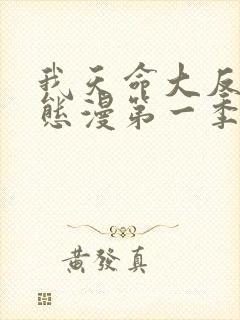 我天命大反
态漫第一季
黄發真